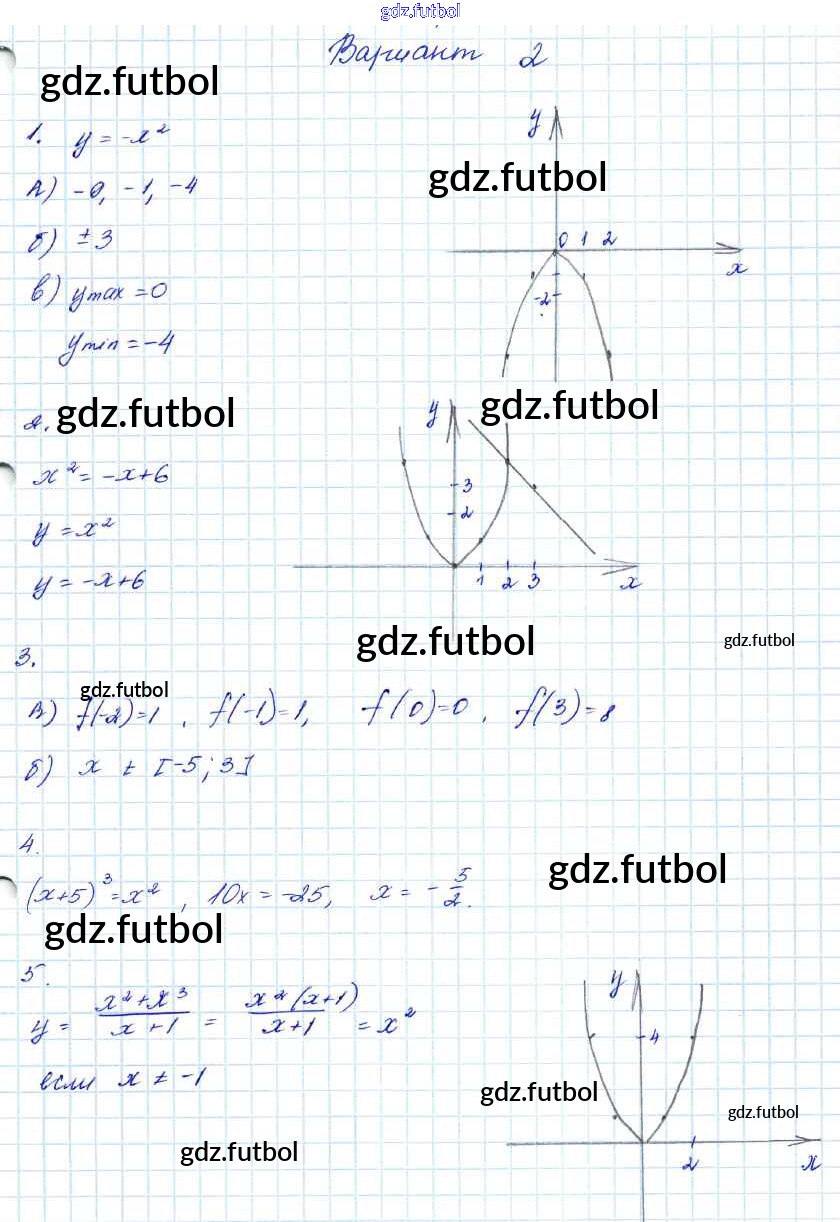 gdz.futbol
Вариант 2
gdz.futbol
1. y = -x²
y
А) -0, -1, -4
gdz.futbol
б) ±3
0 1 2
x
в) ymax = 0
-2
ymin = -4
2. gdz.futbol
y
gdz.futbol
x² = -x+6
3
y = x²
2
y = -x+6
1 2 3 x
3.
gdz.futbol
gdz.futbol
gdz.futbol
А) f(-2)=1, f(-1)=1, f(0)=0, f(3)=8
б) x ≠ [-5; 3]
4.
gdz.futbol
(x+5)³=x², 10x = -25, x = -5/2.
gdz.futbol
5.
y = (x²+x³)/(x+1) = (x²(x+1))/(x+1) = x²
y
4
если x ≠ -1
gdz.futbol
gdz.futbol
gdz.futbol
2 x